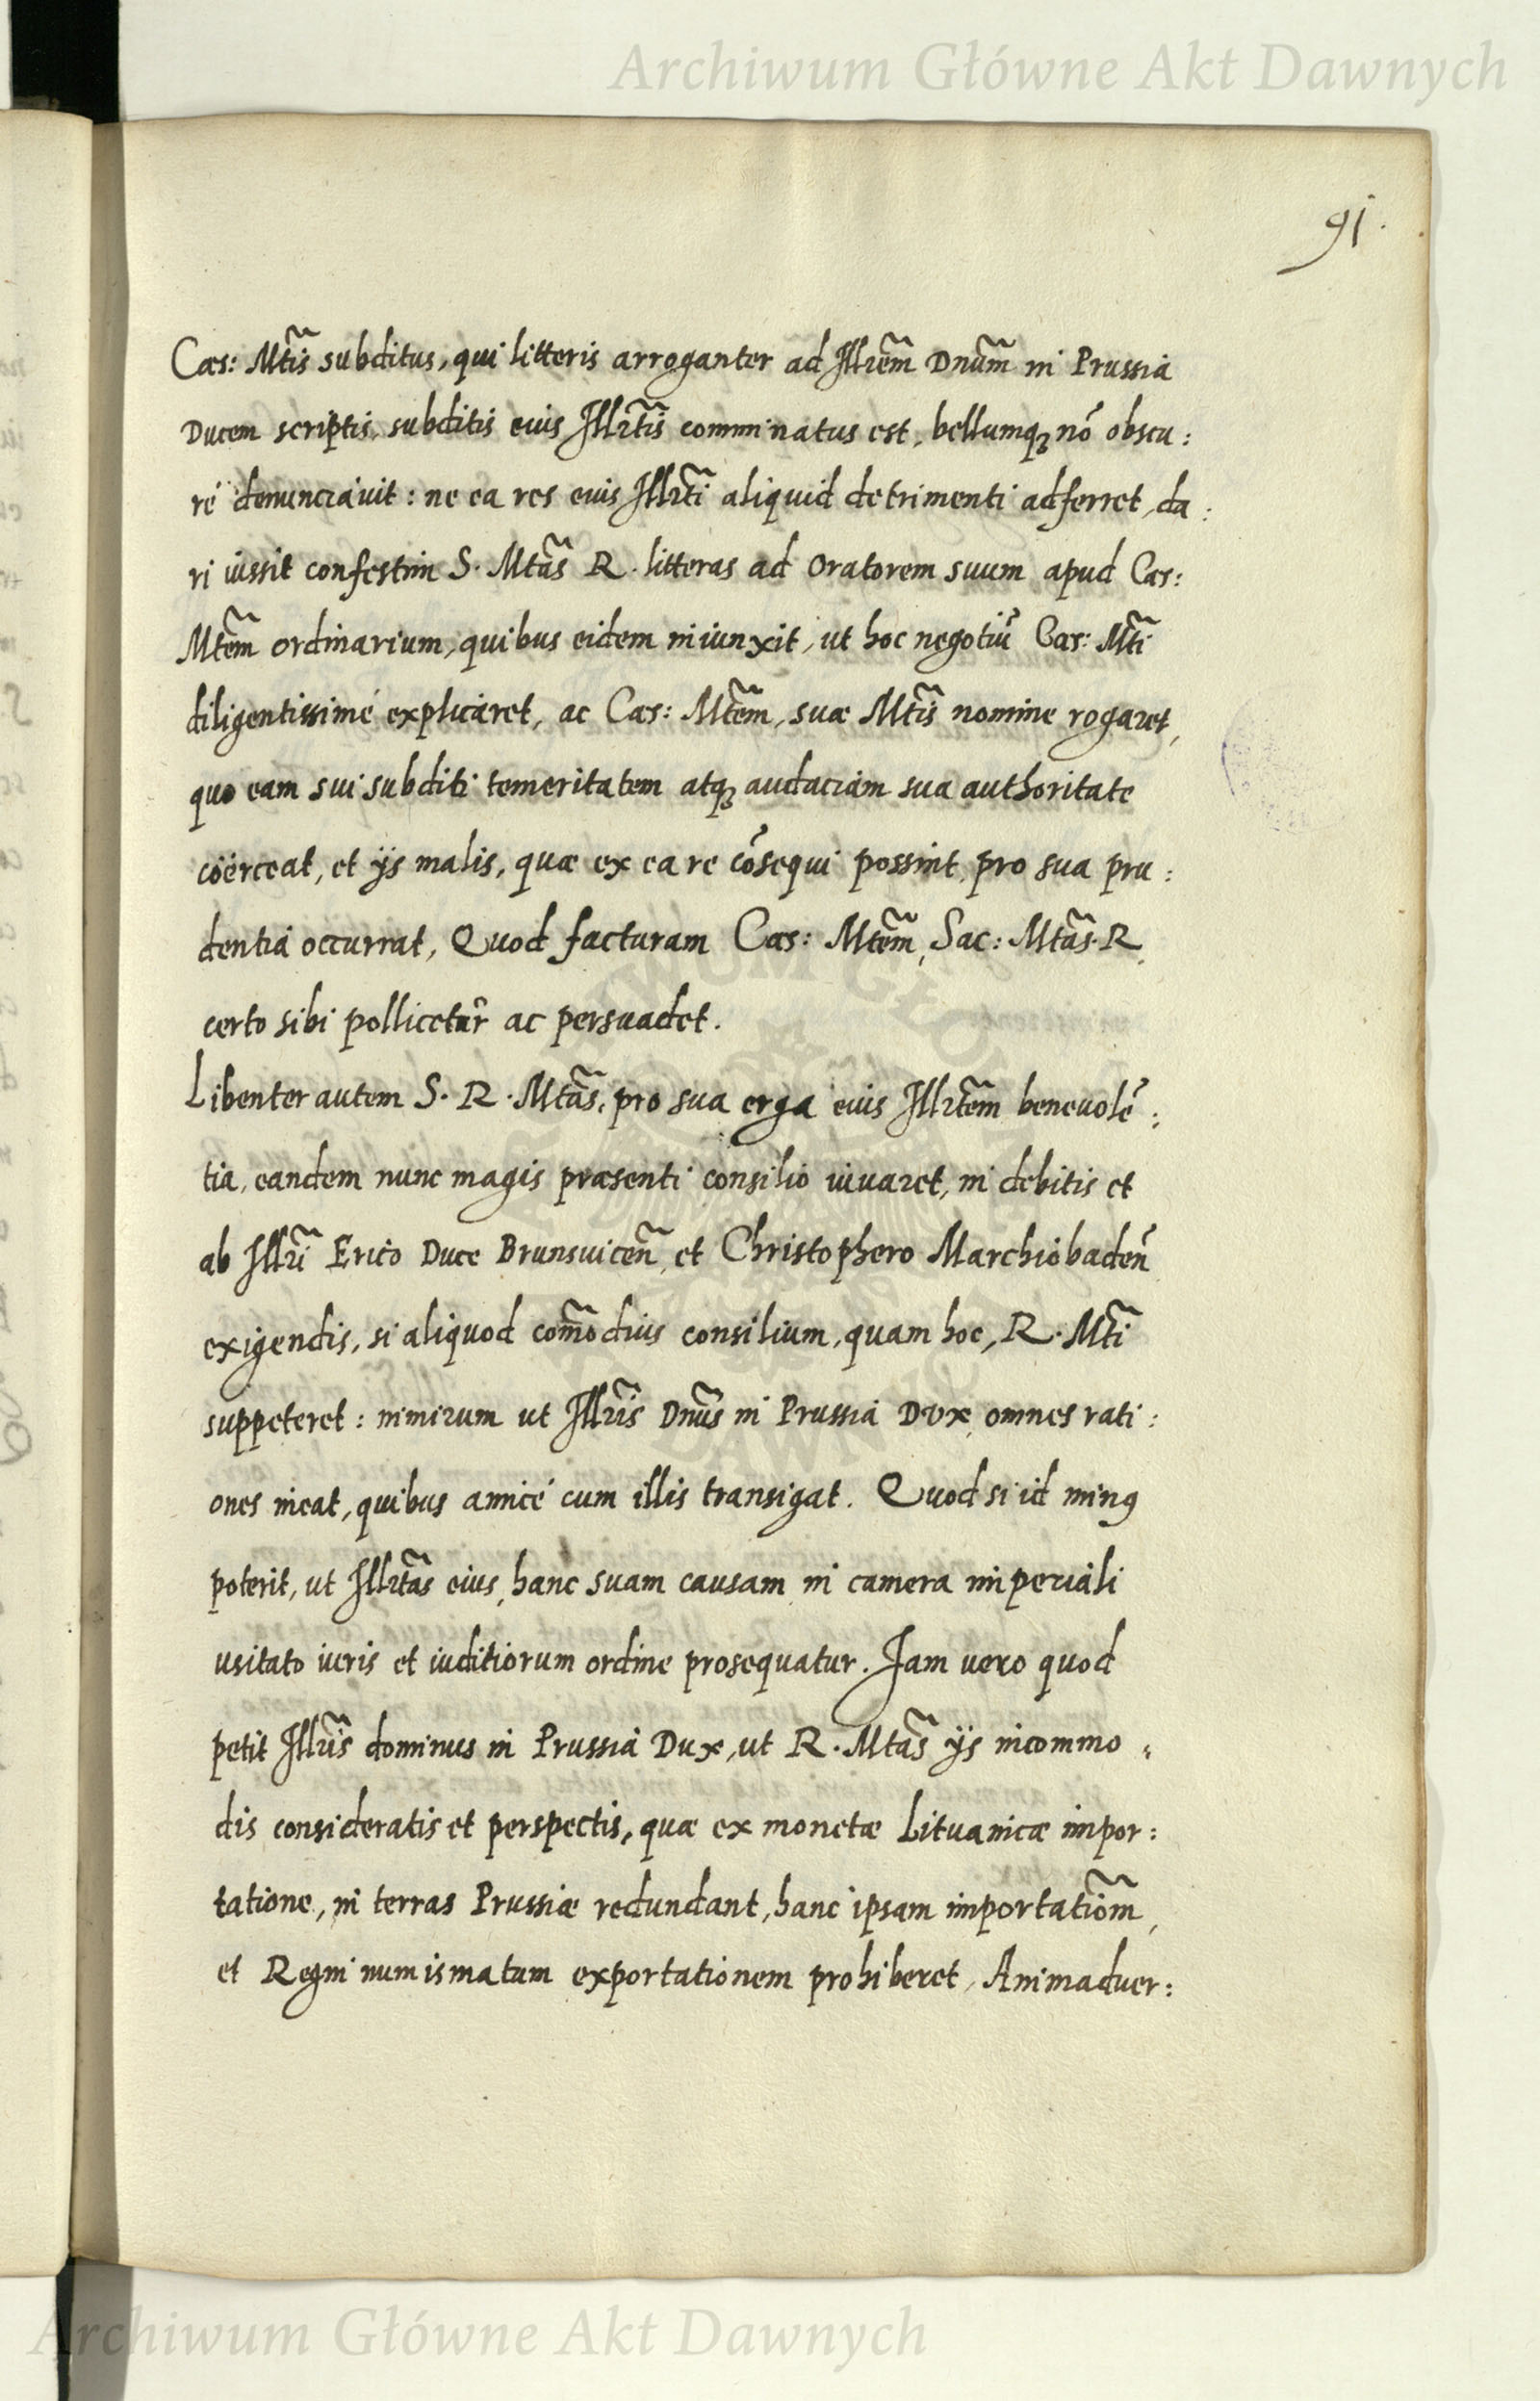 Archiwum Główne Akt Dawnych
91.
Cæs: Mtĩs subditus, qui litteris arroganter ad Illrem̃ Dnum̃ in Prussia
Ducem scriptis, subditis eius Illrtĩs comminatus est, bellumq₃ nõ obscu:
ré denunciauit: ne ea res eius Illrtĩ aliquid detrimenti adferret, da:
ri iussit confestim S. Mtãs R. litteras ad Oratorem suum apud Cæs:
Mtẽm ordinarium, quibus eidem iniunxit, ut hoc negotiũ Cæs: Mtĩ
diligentissimé explicaret, ac Cæs: Mtẽm, suæ Mtĩs nomine rogaret,
quo eam sui subditi temeritatem atq₃ audaciam sua authoritate
coërceat, et ijs malis, quæ ex ea re cõsequi possint, pro sua pru:
dentia occurrat, Quod facturam Cæs: Mtẽm, Sac: Mtãs. R.
certo sibi pollicetur̃ ac persuadet.
Libenter autem S. R. Mtãs, pro sua erga eius Illrtẽm beneuolẽ:
tia, eandem nunc magis præsenti consilio iuuaret, in debitis et
ab Illrĩ Erico Duce Brunsuiceñ, et Christophero Marchiobadeñ
exigendis, si aliquod com̃odius consilium, quam hoc, R. Mtĩ
suppeteret: nimirum ut Illrĩs Dnũs in Prussia Dux, omnes rati:
ones ineat, quibus amicé cum illis transigat. Quod si id minꝰ
poterit, ut Illrtãs eius, hanc suam causam in camera imperiali
usitato iuris et iuditiorum ordine prosequatur. Jam vero quod
petit Illrĩs dominus in Prussia Dux, ut R. Mtãs ijs incommo:
dis consideratis et perspectis, quæ ex monetæ Lituanicæ impor:
tatione, in terras Prussiæ redundant, hanc ipsam importatiom̃,
et Regni numismatum exportationem prohiberet, Animaduer:
Archiwum Główne Akt Dawnych